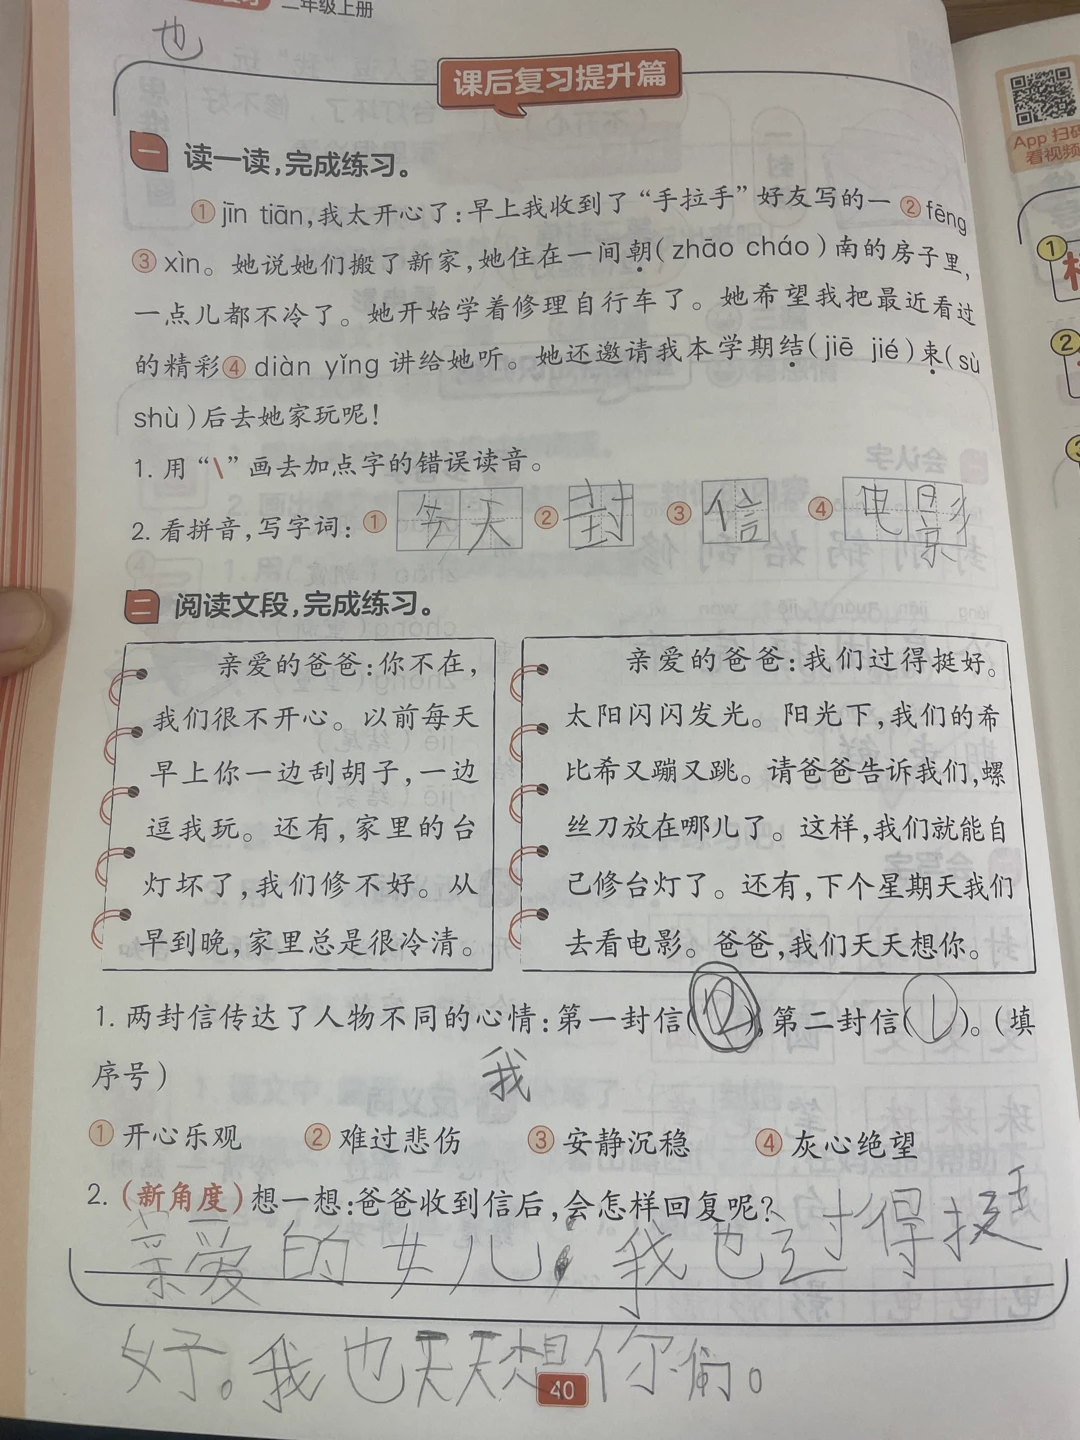 二年级上册
也
课后复习提升篇
App 扫码
看视频
一 读一读,完成练习。
①jīn tiān,我太开心了:早上我收到了“手拉手”好友写的一②fēng
③xìn。她说她们搬了新家,她住在一间朝(zhāo cháo)南的房子里,
一点儿都不冷了。她开始学着修理自行车了。她希望我把最近看过
的精彩④diàn yǐng讲给她听。她还邀请我本学期结(jiē jié)束(sù
shù)后去她家玩呢!
1. 用“\”画去加点字的错误读音。
2. 看拼音,写字词:①今天 ②封 ③信 ④电影
二 阅读文段,完成练习。
亲爱的爸爸:你不在,
我们很不开心。以前每天
早上你一边刮胡子,一边
逗我玩。还有,家里的台
灯坏了,我们修不好。从
早到晚,家里总是很冷清。
亲爱的爸爸:我们过得挺好。
太阳闪闪发光。阳光下,我们的希
比希又蹦又跳。请爸爸告诉我们,螺
丝刀放在哪儿了。这样,我们就能自
己修台灯了。还有,下个星期天我们
去看电影。爸爸,我们天天想你。
1. 两封信传达了人物不同的心情:第一封信(②),第二封信(1)。(填
序号)
我
①开心乐观 ②难过悲伤 ③安静沉稳 ④灰心绝望
2. (新角度)想一想:爸爸收到信后,会怎样回复呢?
亲爱的女儿,我也过得挺
好。我也天天想你们。
40